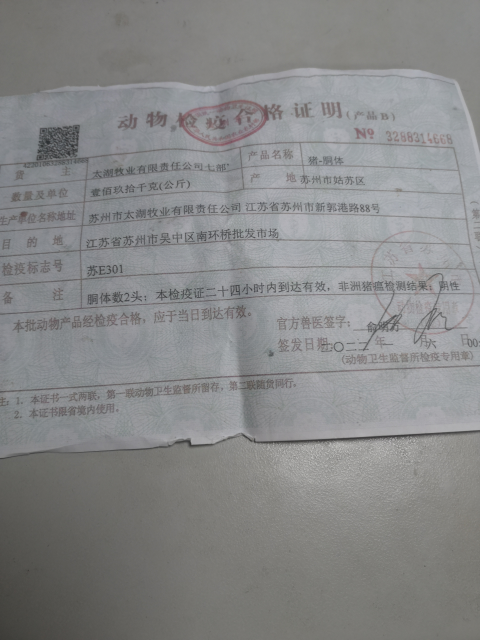 动物检疫合格证明(产品B)
№ 3288314668
货 主 太湖牧业有限责任公司七部 产品名称 猪-胴体
数量及单位 壹佰玖拾千克(公斤) 产 地 苏州市姑苏区
生产单位名称地址 苏州市太湖牧业有限责任公司 江苏省苏州市新郭港路88号
目 的 地 江苏省苏州市吴中区南环桥批发市场
检疫标志号 苏E301
备 注 胴体数2头；本检疫证二十四小时内到达有效，非洲猪瘟检测结果：阴性
本批动物产品经检疫合格，应于当日到达有效。
官方兽医签字：
签发日期 二〇二二年 六
(动物卫生监督所检疫专用章)
注：1. 本证书一式两联，第一联动物卫生监督所留存，第二联随货同行。
2. 本证书限省境内使用。